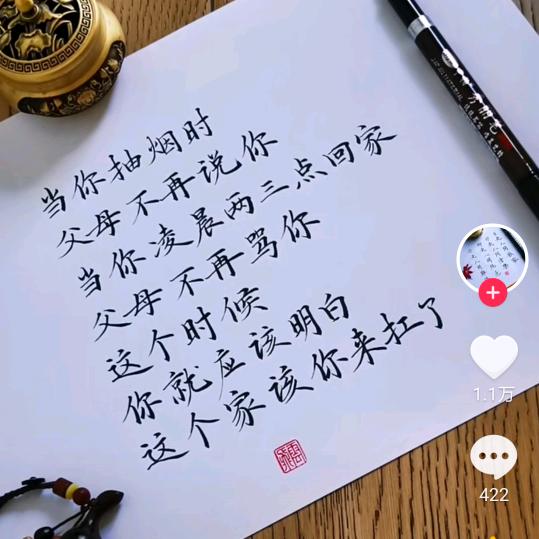 当你抽烟时
父母不再说你
当你凌晨两三点回家
父母不再骂你
这个时候
你就应该明白
这个家该你来扛了
1.1万
422